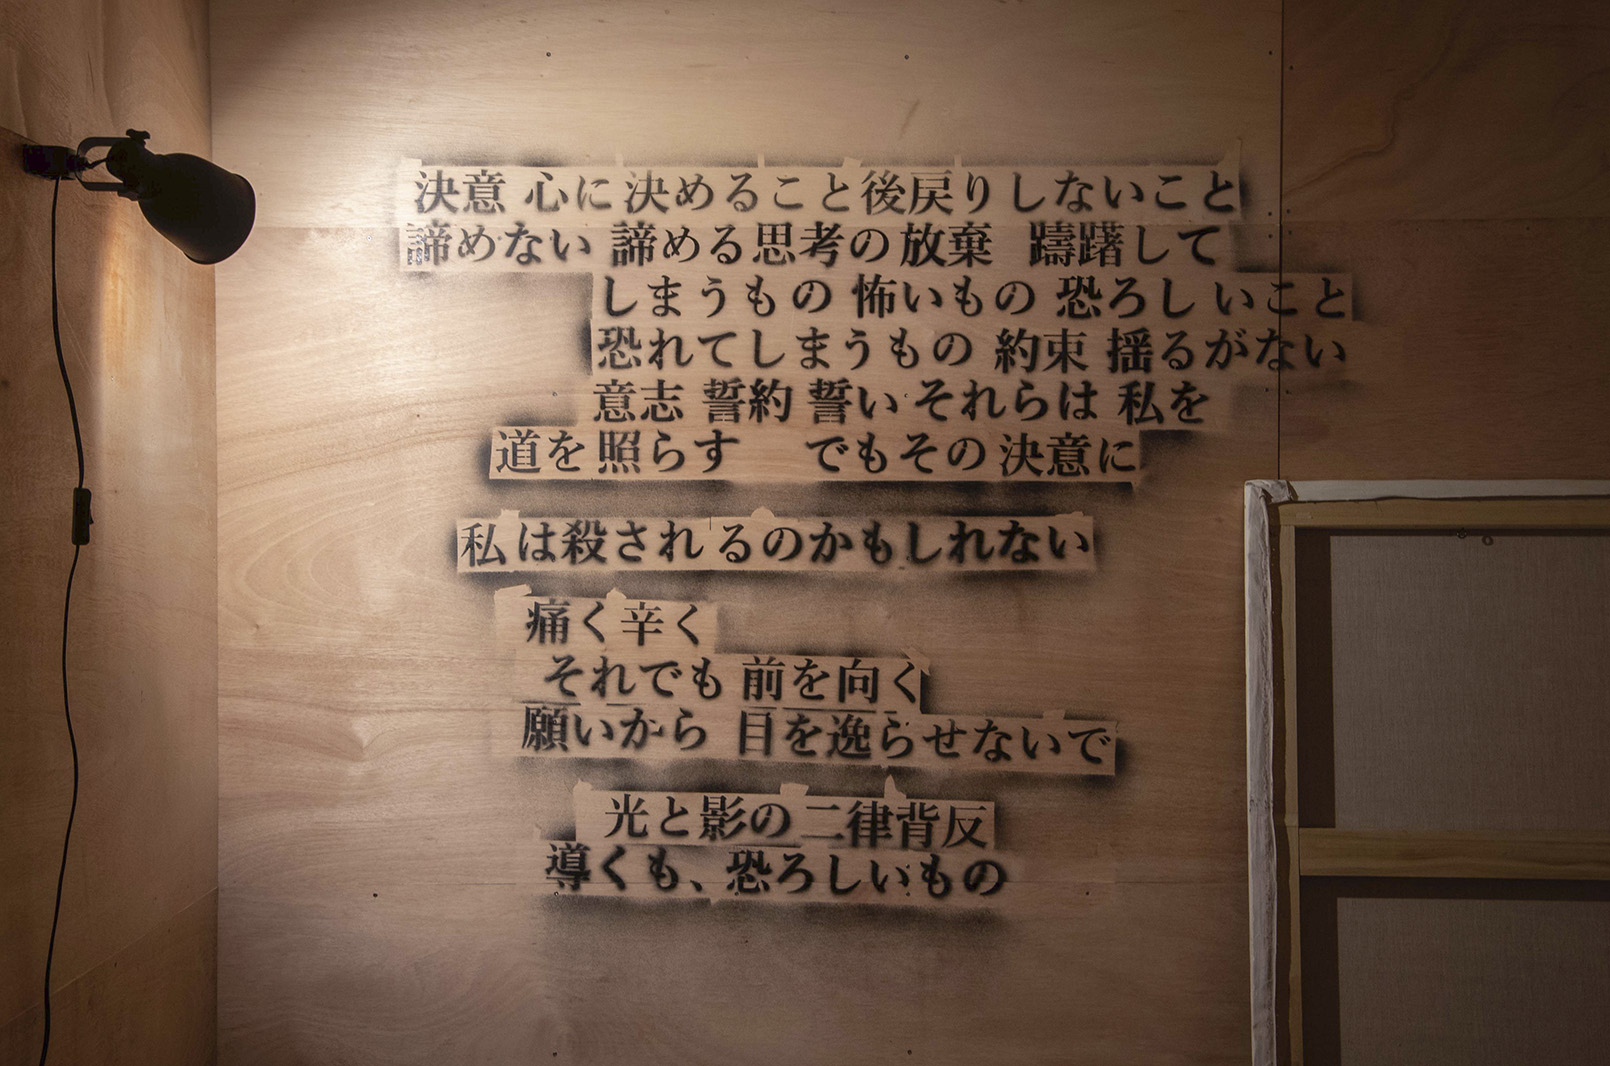 決意 心に 決めること 後戻りしないこと
諦めない 諦める思考の放棄 躊躇して
しまうもの 怖いもの 恐ろしいこと
恐れてしまうもの 約束 揺るがない
意志 誓約 誓い それらは 私を
道を 照らす でもその決意に
私は殺されるのかもしれない
痛く辛く
それでも 前を向く
願いから 目を逸らせないで
光と影の二律背反
導くも、恐ろしいもの